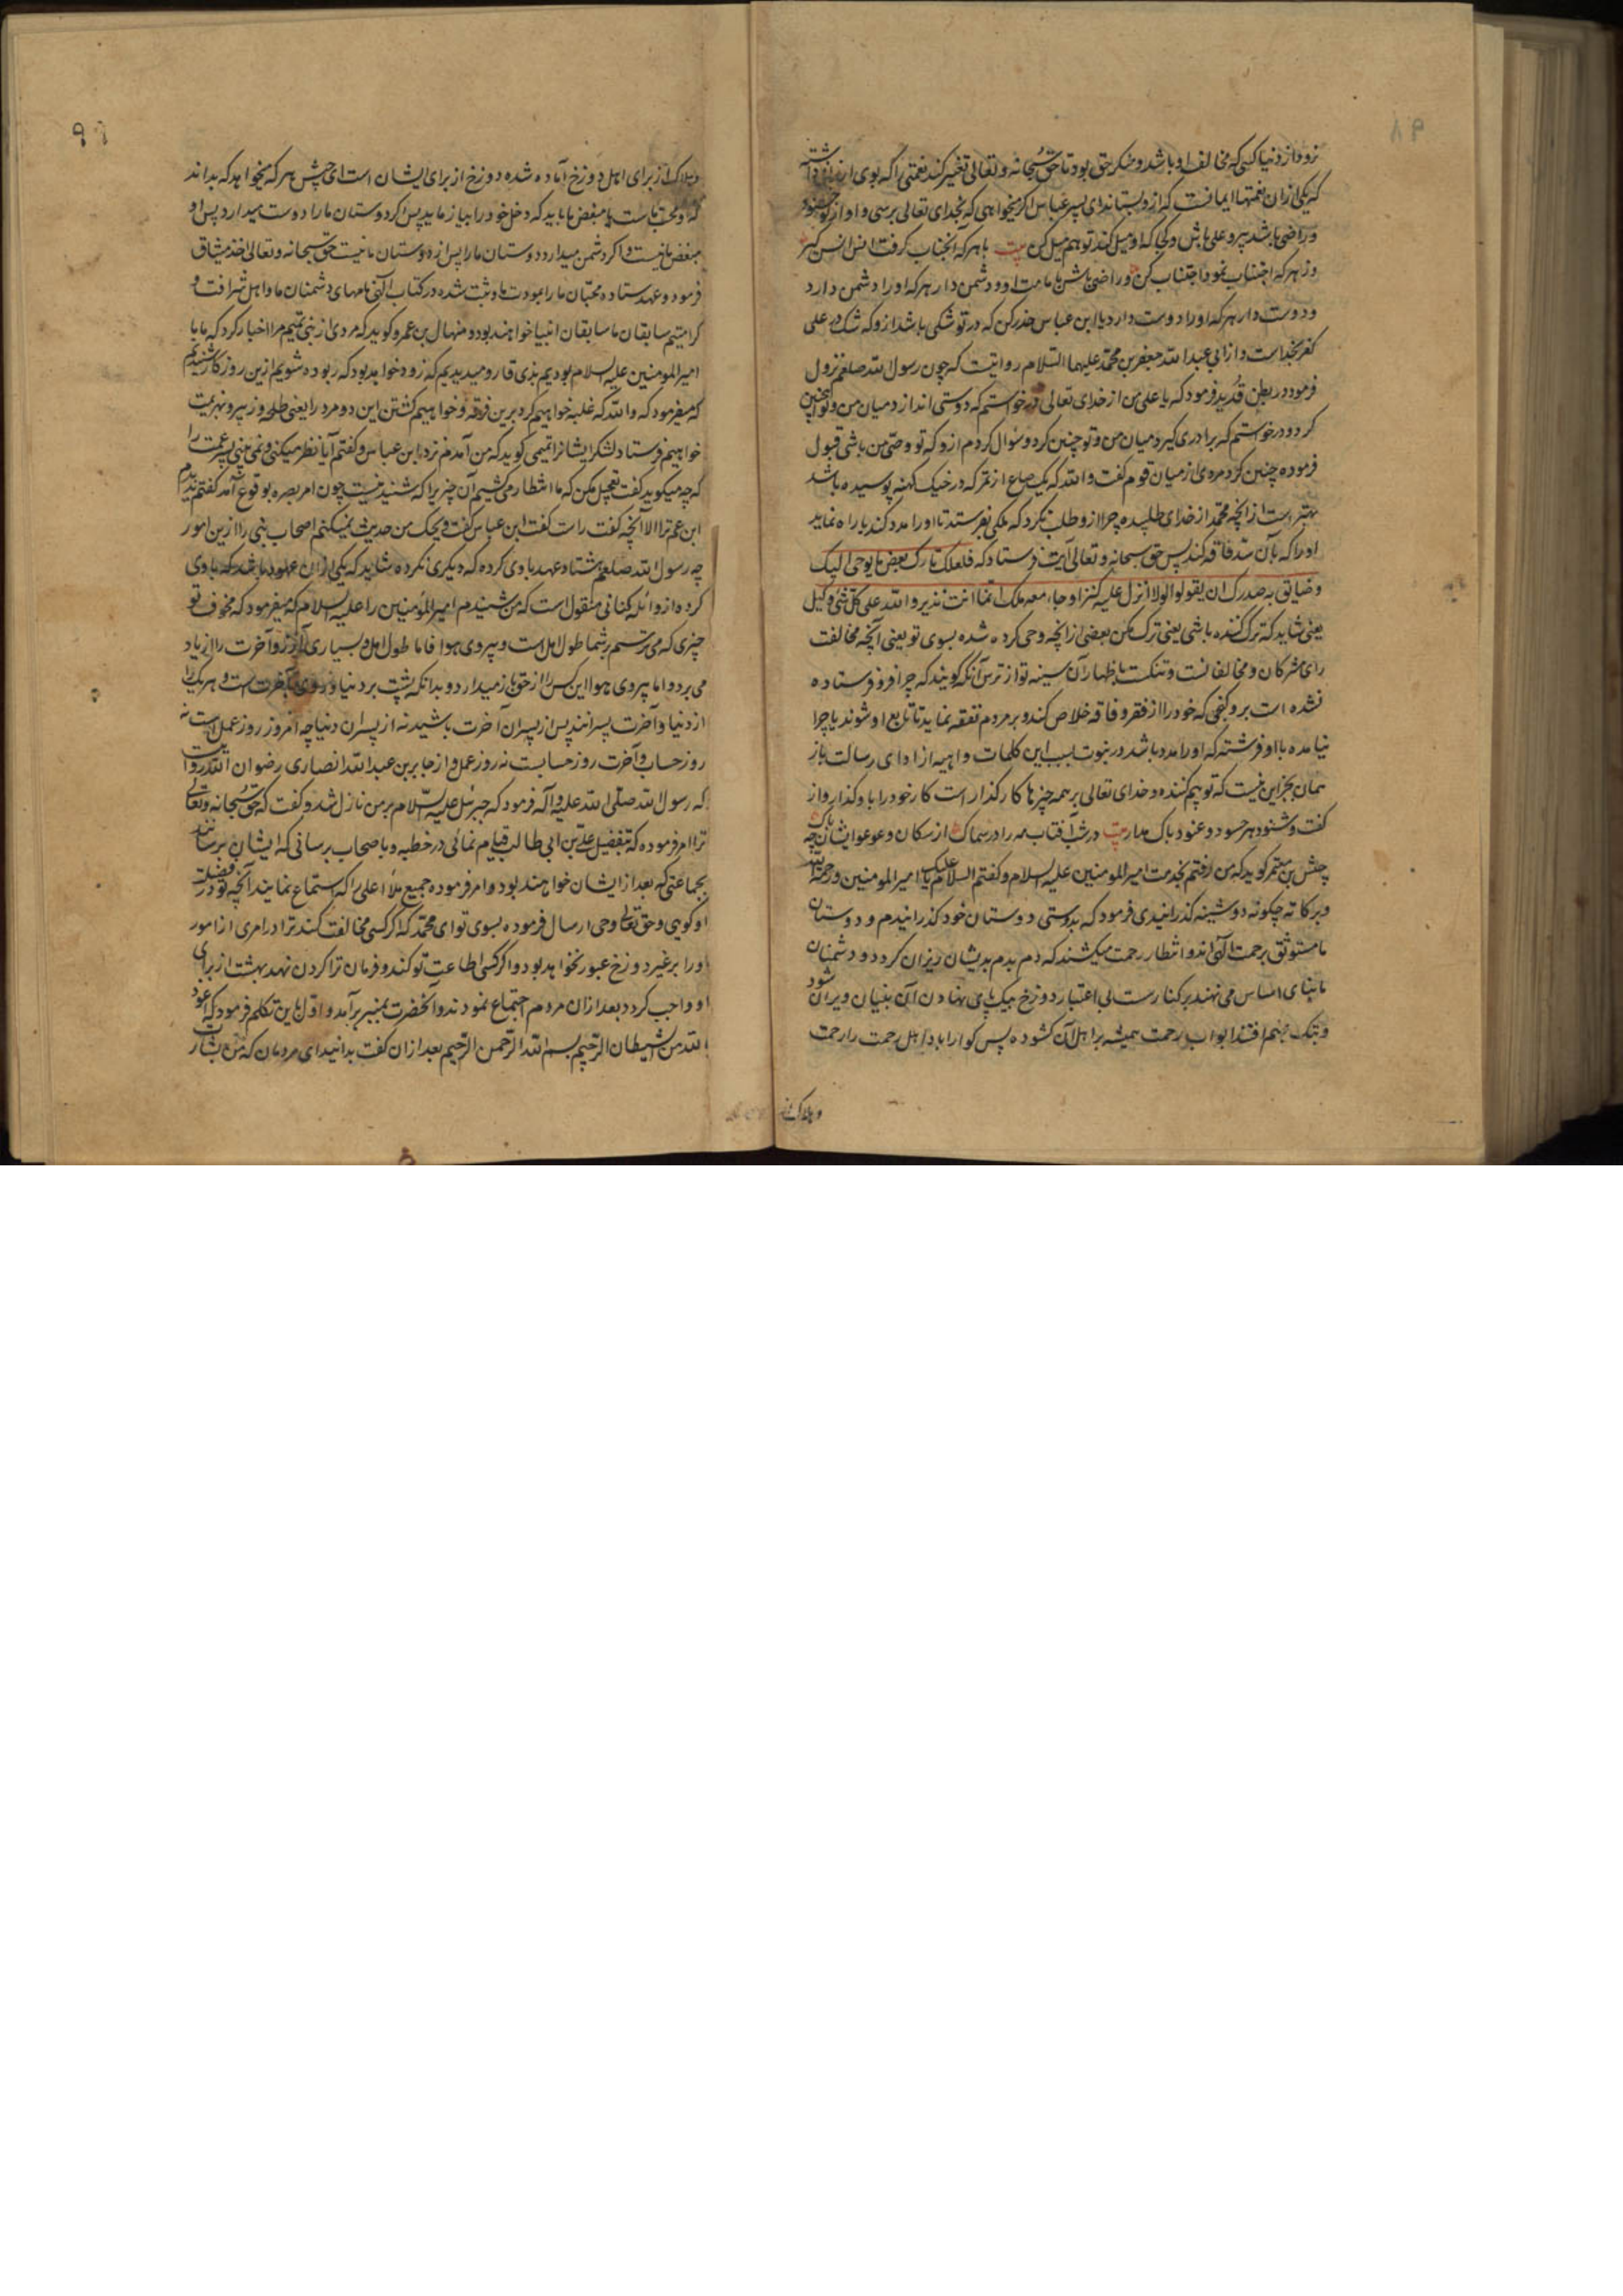 نرود از دنیا کسی که مخالف او باشد و منکر حق بود تا حق سبحانه و تعالی تغییر کند نعمتی را که بوی ارزانی داشته
که یکی از آن نعمتها ایمانست که ازو بستاند ای پسر عباس اگر میخواهی که بخدای تعالی برسی و او از تو خشنود
و راضی باشد پیرو علی باش و کجا که او میل کند تو هم میل کن بیت با هر که آنجناب گرفت انس انس گیر
وز هر که اجتناب نمود اجتناب کن و راضی باش با مامت او و دشمن دار هر که او را دشمن دارد
و دوست دار هر که او را دوست دارد یا ابن عباس حذر کن که در تو شکی باشد ازو که شک در علی
کفر بخداست و از ابی عبد الله جعفر بن محمد علیهما السلام روایتست که چون رسول الله صلعم نزول
فرمود در بطن قدید فرمود که یا علی من از خدای تعالی درخواستم که دوستی اندازد میان من و تو همچنین
کرد و درخواستم که برادری گیرد میان من و تو چنین کرد و سؤال کردم ازو که تو وصی من باشی قبول
فرموده چنین کرد مردی از میان قوم گفت والله که یک صاع از تمر که در خیک کهنه پوسیده باشد
بهتر است از آنچه محمد از خدای طلبیده چرا ازو طلب نکرد که ملکی بفرستد تا او را مدد کند یا راه نماید
او را که بآن سد فاقه کند پس حق سبحانه و تعالی آیت فرستاد که فلعلک تارک بعض ما یوحی الیک
و ضایق به صدرک ان یقولوا لولا انزل علیه کنز او جاء معه ملک انما انت نذیر و الله علی کل شئ وکیل
یعنی شاید که ترک کننده باشی یعنی ترک مکن بعضی از آنچه وحی کرده شده بسوی تو یعنی آنچه مخالفت
رای مشرکان و مخالفانست و تنکست باظهار آن سینه تو از ترس آنکه گویند که چرا فرو فرستاده
نشده است برو گنجی که خود را از فقر و فاقه خلاص کند و بر مردم نفقه نماید تا تابع او شوند یا چرا
نیامده با او فرشته که او را مدد باشد در نبوت بسبب این کلمات واهیه از ادای رسالت باز
ممان بجز این نیست که تو بیم کننده و خدای تعالی بر همه چیزها کارگذار است کار خود را باو گذار و از
گفت و شنود هر حسود و عنود باک مدار بیت در شب آفتاب مه را در سماک از سگان و عوعو ایشان چه باک
جعش بن معتمر گوید که من رفتم بخدمت امیر المومنین علیه السلام و گفتم السلام علیک یا امیر المومنین و رحمة الله
و برکاته چگونه دوشینه گذرانیدی فرمود که بدوستی دوستان خود گذرانیدم و دوستان
ما مستوثق برحمت آلهی اند و انتظار رحمت میکشند که دم بدم بدیشان ریزان گردد و دشمنان
ما بنای اساس می نهند بر کنار رست بی اعتبار دوزخ بیک پای نهادن آن بنیان ویران شود
و بتک جهنم افتد ابواب رحمت همیشه بر اهل آن گشوده پس گوارا باد اهل رحمت را رحمت
و هلاکت
و هلاکت از برای اهل دوزخ آماده شده دوزخ از برای ایشان است ای جعش هر که میخواهد که بداند
که او محب ماست یا مبغض ما باید که دخل خود را بیازماید پس اگر دوستان ما را دوست میدارد پس او
مبغض ما نیست و اگر دشمن میدارد دوستان ما را پس از دوستان ما نیست حق سبحانه و تعالی اخذ میثاق
فرمود و عهد ستاده محبان ما را بمودت ما و ثبت شده در کتاب آلهی نامهای دشمنان ما و اهل شرافت و
کرامتیم سابقان ما سابقان انبیا خواهند بود و منهال بن عمرو گوید که مردی از بنی تمیم مرا اخبار کرد که ما با
امیر المومنین علیه السلام بودیم بذی قار و میدیدیم که زود خواهد بود که ربوده شویم ازین روزگار شنیدیم
که میفرمود که والله که غلبه خواهیم کرد برین فرقه و خواهیم کشتن این دو مرد را یعنی طلحه و زبیر و بهزیمت
خواهیم فرستاد لشکر ایشانرا تمیمی گوید که من آمدم نزد ابن عباس و گفتم آیا نظر میکنی و نمی بینی پسر عمت را
که چه میگوید گفت تعجیل مکن که ما انتظار می کشیم آن چیز را که شنید نیست چون امر بصره بوقوع آمد گفتم ندیدم
ابن عم ترا الا آنچه گفت راست گفت ابن عباس گفت ویحک من حدیث نمیکنم اصحاب بنی را ازین امور
چه رسول الله صلعم هشتاد عهد با وی کرده که دیگری نکرده شاید که یکی از آن عهود باشد که با وی
کرده از وائله کنانی منقول است که من شنیدم امیر المؤمنین را علیه السلام که میفرمود که مخوف تو
چیزی که می ترسم بر شما طول امل است و پیروی هوا فاما طول امل و بسیاری آرزو آخرت را از یاد
می برد و اما پیروی هوا این کس را از حق باز میدارد و بدانکه پشت بر دنیا و روی بآخرت است و هر یک را
از دنیا و آخرت پسرانند پس از پسران آخرت باشید نه از پسران دنیا چه امروز روز عمل است نه
روز حساب و آخرت روز حسابست نه روز عمل و از جابر بن عبد الله انصاری رضوان الله روایت
که رسول الله صلی الله علیه و آله فرمود که جبرئیل علیه السلام بر من نازل شد و گفت که حق سبحانه و تعالی
ترا امر فرموده که بتفضیل علی بن ابی طالب قیام نمائی در خطبه و باصحاب برسانی که ایشان برسانند
بجماعتی که بعد از ایشان خواهند بود و امر فرموده جمیع ملأ اعلی را که استماع نمایند آنچه تو در فضیلت
او گویی و حق تعالی وحی ارسال فرموده بسوی تو ای محمد که اگر کسی مخالفت کند ترا در امری از امور
او را بر غیر دوزخ عبور نخواهد بود و اگر کسی اطاعت تو کند و فرمان ترا گردن نهد بهشت از برای
او واجب گردد بعد از آن مردم اجتماع نمودند و آنحضرت بمنبر برآمد و اول باین تکلم فرمود که اعوذ
بالله من الشیطان الرجیم بسم الله الرحمن الرحیم بعد از آن گفت بدانید ای مردمان که من بشارت